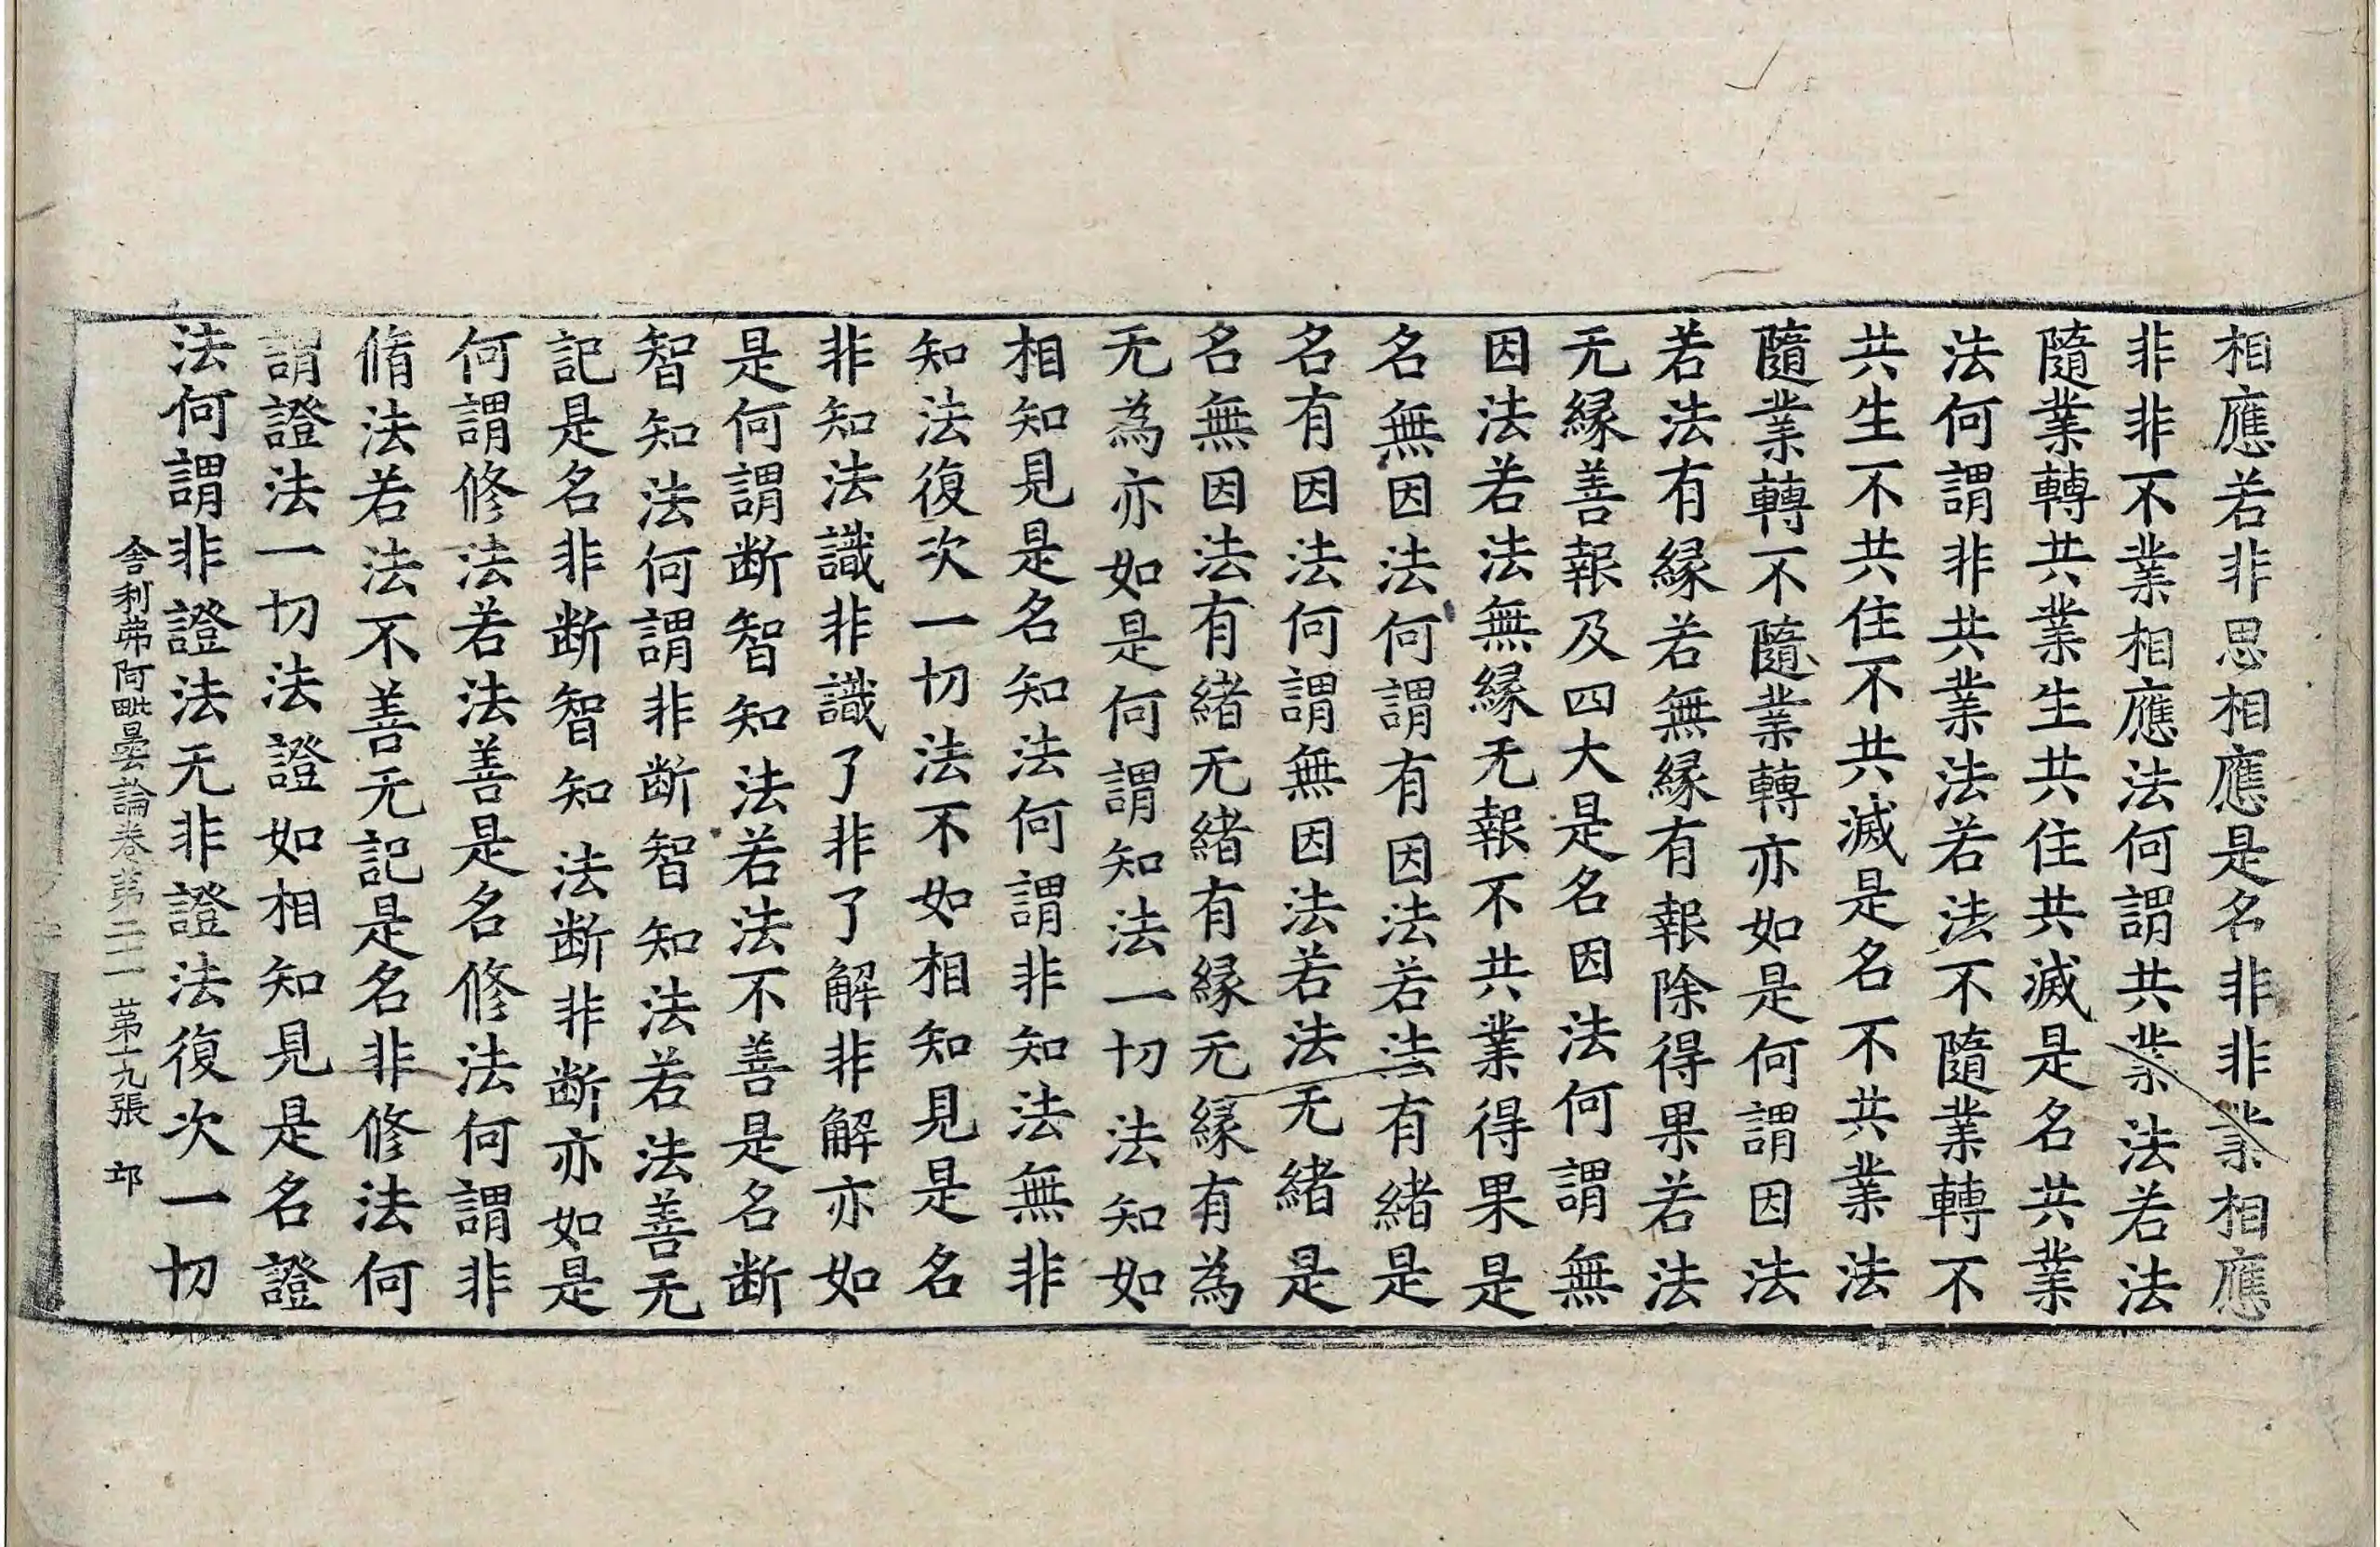 相應若非思相應是名非非業相應
非非不業相應法何謂共業法若法
隨業轉共業生共住共滅是名共業
法何謂非共業法若法不隨業轉不
共生不共住不共滅是名不共業法
隨業轉不隨業轉亦如是何謂因法
若法有縁若無縁有報除得果若法
无縁善報及四大是名因法何謂無
因法若法無縁无報不共業得果是
名無因法何謂有因法若法有緒是
名有因法何謂無因法若法无緒是
名無因法有緒无緒有縁无縁有為
无為亦如是何謂知法一切法知如
相知見是名知法何謂非知法無非
知法復次一切法不如相知見是名
非知法識非識了非了解非解亦如
是何謂断智知法若法不善是名断
智知法何謂非断智知法若法善无
記是名非断智知法断非断亦如是
何謂修法若法善是名修法何謂非
脩法若法不善无記是名非修法何
謂證法一切法證如相知見是名證
法何謂非證法无非證法復次一切
舎利苐阿毗曇論卷第二一苐十九張 卭